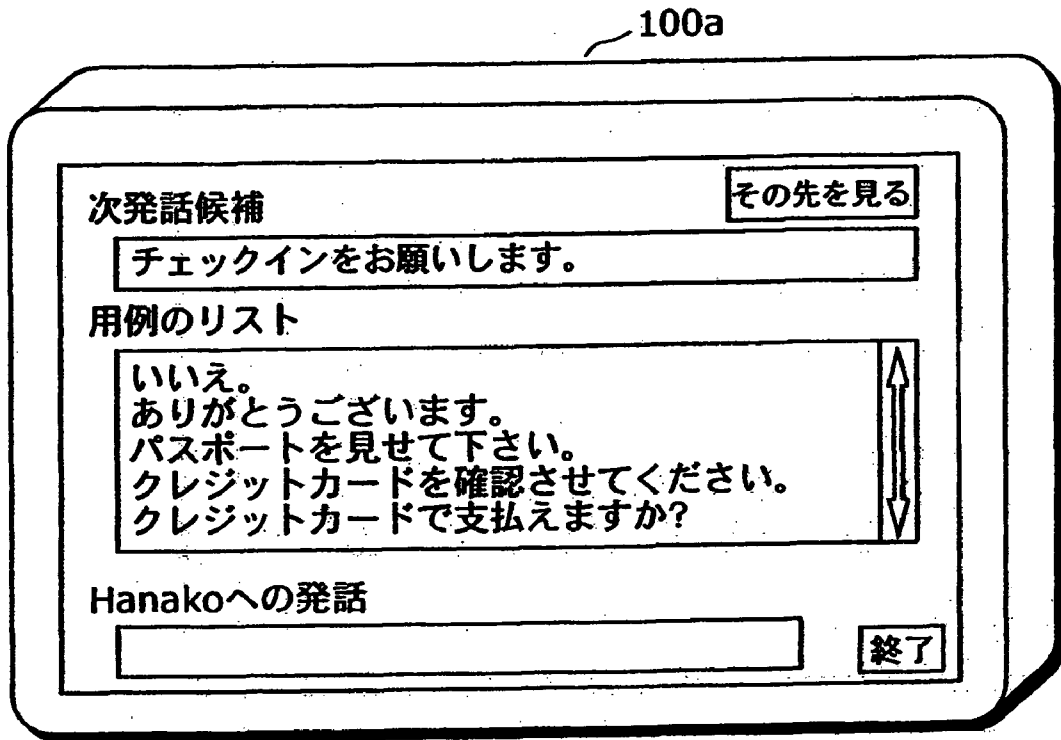 100a
次発話候補
その先を見る
チェックインをお願いします。
用例のリスト
いいえ。
ありがとうございます。
パスポートを見せて下さい。
クレジットカードを確認させてください。
クレジットカードで支払えますか?
Hanakoへの発話
終了